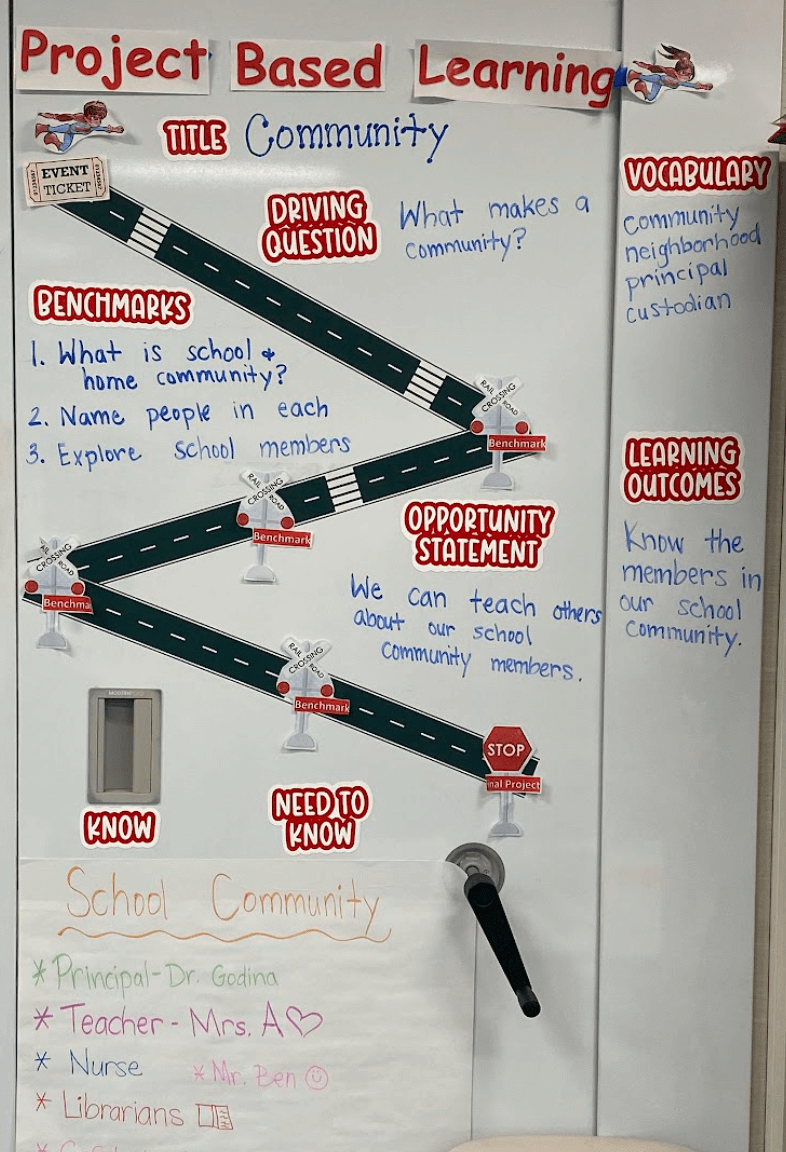 Project Based Learning
TITLE Community
EVENT
TICKET
DRIVING
QUESTION
What makes a
community?
VOCABULARY
community
neighborhood
principal
custodian
BENCHMARKS
1. What is school &
home community?
2. Name people in each
3. Explore school members
RAIL
CROSSING
ROAD
Benchmark
RAIL
CROSSING
ROAD
Benchmark
CROSSING
ROAD
Benchma
RAIL
CROSSING
ROAD
Benchmark
STOP
nal Project
OPPORTUNITY
STATEMENT
We can teach others
about our school
community members.
LEARNING
OUTCOMES
Know the
members in
our school
community.
KNOW
NEED TO
KNOW
School Community
* Principal - Dr. Godina
* Teacher - Mrs. A ♡
* Nurse
* Mr. Ben ☺
* Librarians